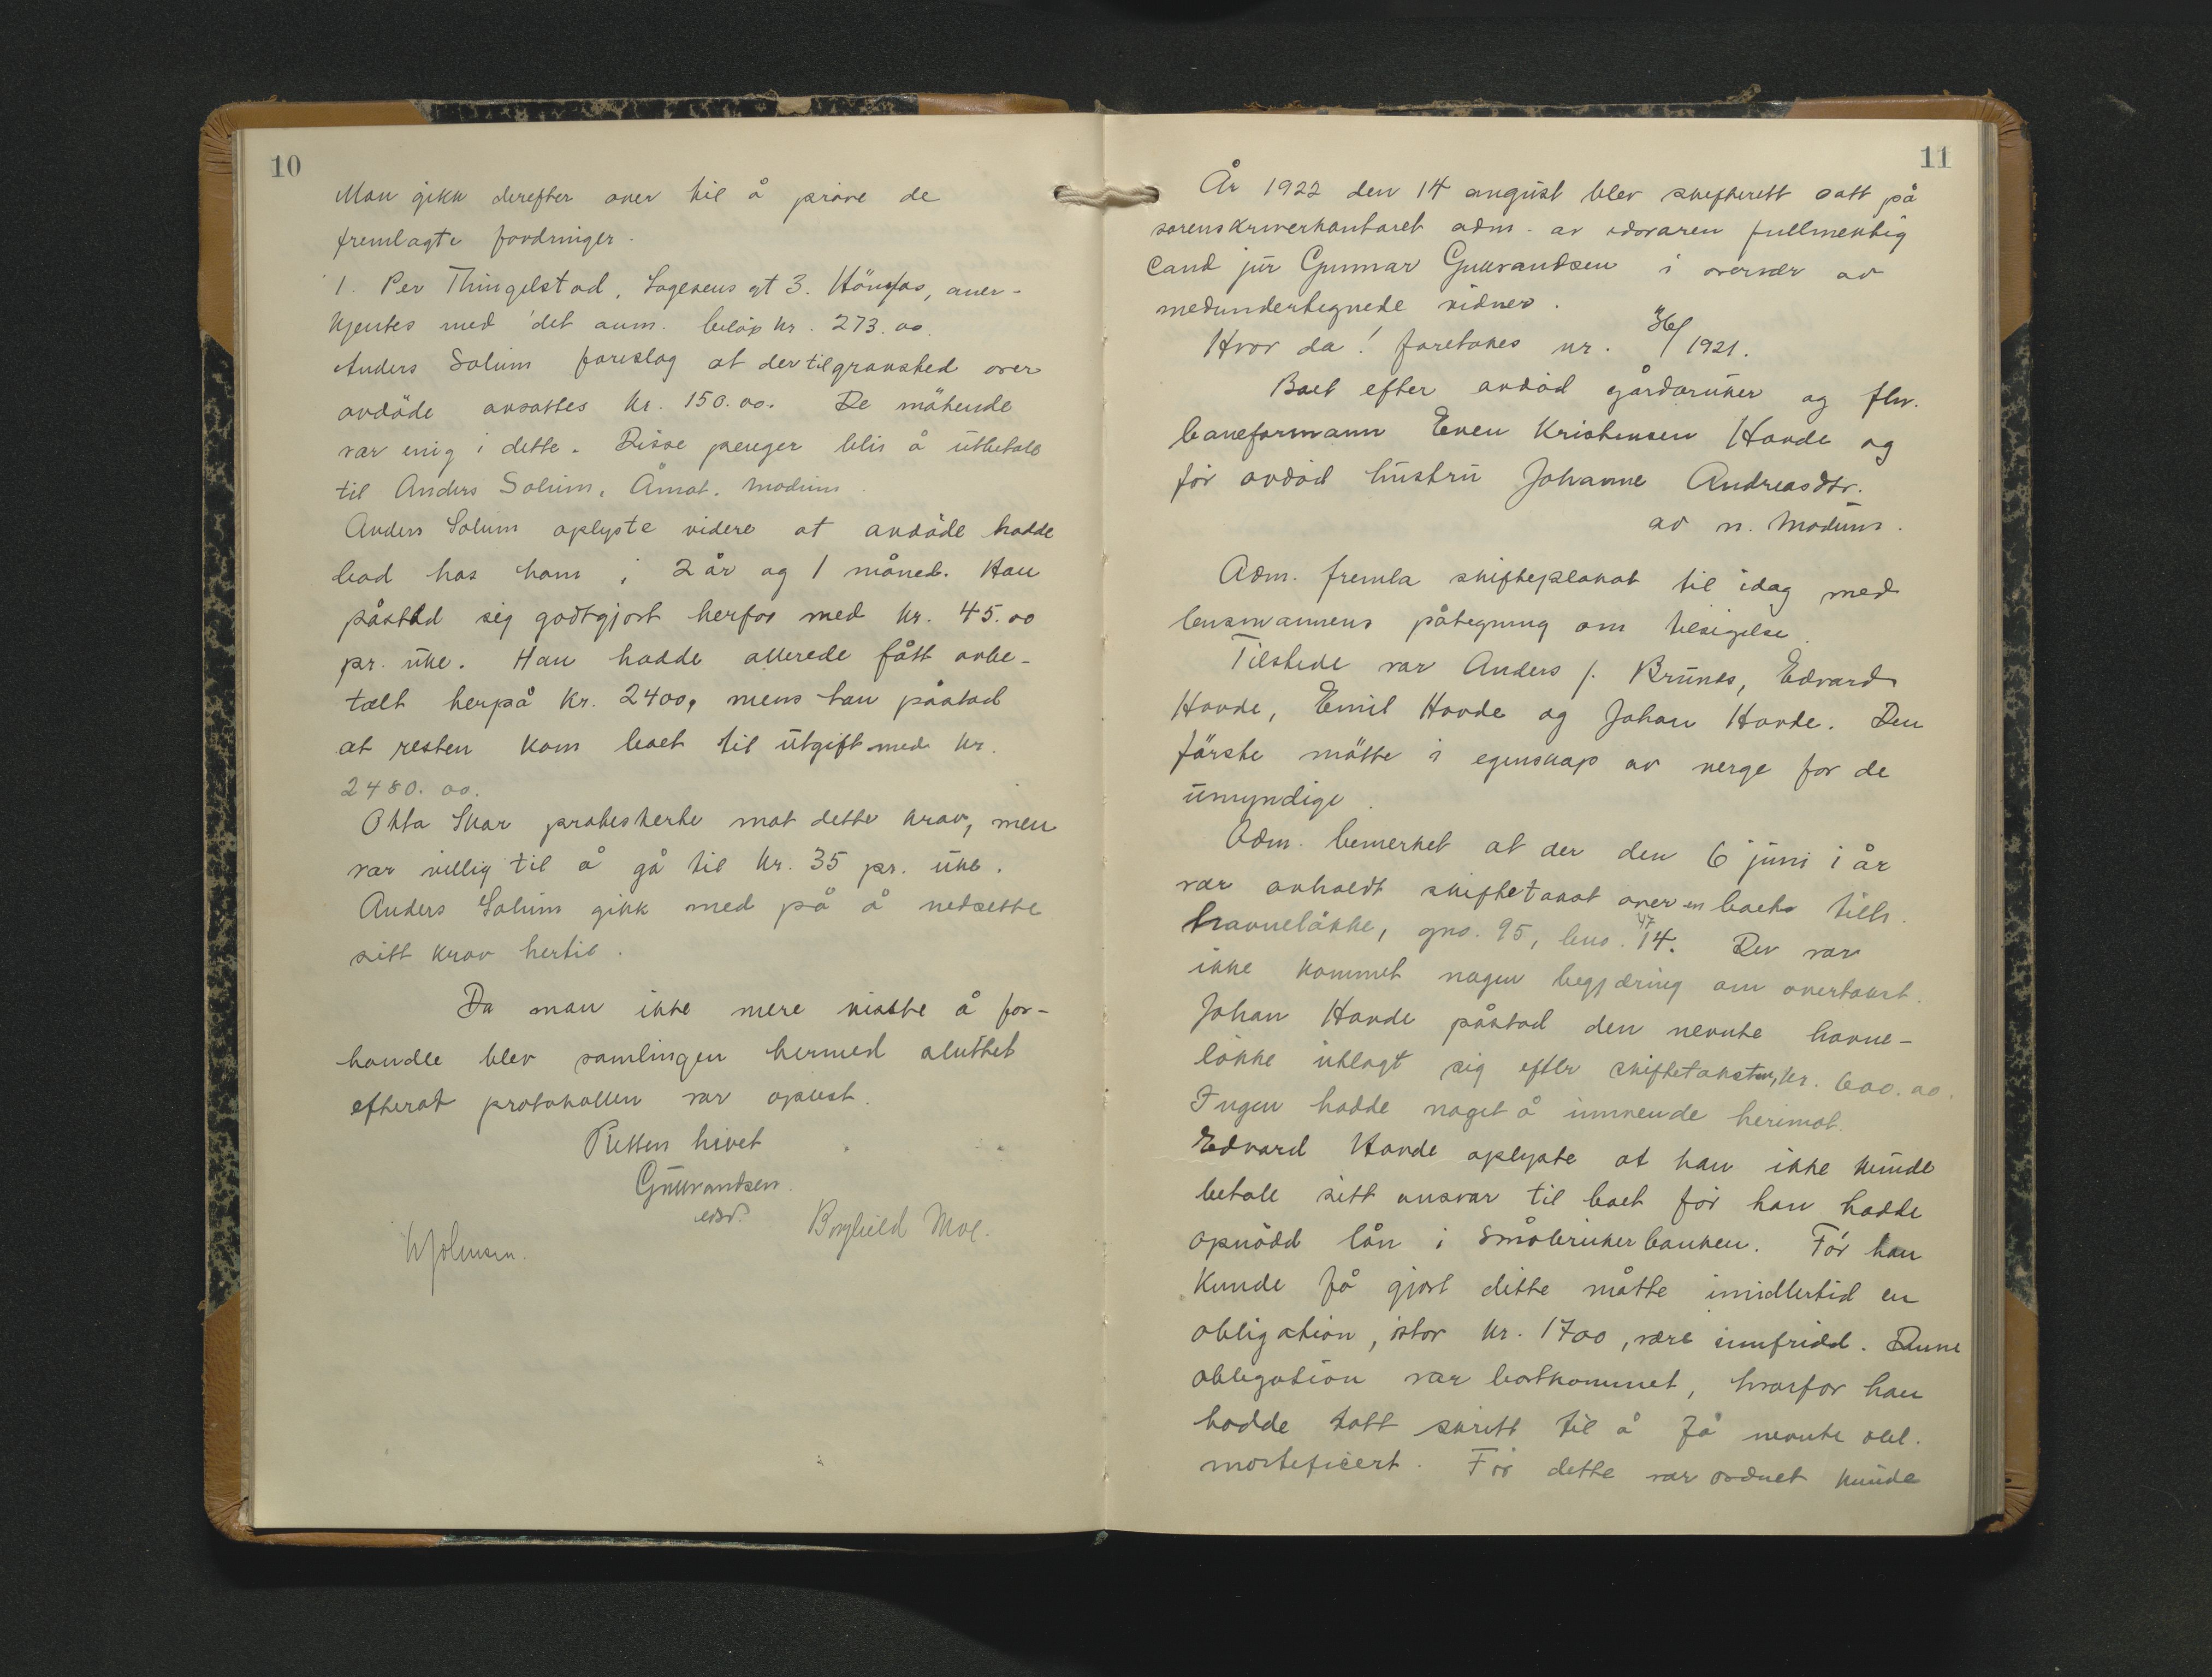 10
Man gikk derefter over til å pröve de
fremlagte fordringer.
1. Per Thingelstad, gt 3. Hönefos, aner-
kjentes med det anm. belöp kr. 273.00.
Anders Solum foreslog at der til gravsted over
avdöde avsattes kr. 150.00. De mötende
var enig i dette. Disse penger blir å utbetale
til Anders Solum, Åmot. Modum
Anders Solum oplyste videre at avdöde hadde
bod hos ham i 2 år og 1 måned. Han
påstod sig godtgjort herfor med kr. 45.00
pr. uke. Han hadde allerede fått avbe-
talt herpå kr. 2400, mens han påstod
at resten kom boet til utgift med kr.
2480.00.
Okta Skar protesterte mot dette krav, men
var villig til å gå til kr. 35 pr. uke.
Anders Solum gikk med på å nedsette
sitt krav hertil.
Da man ikke mere visste å for-
handle blev samlingen hermed sluttet
efterat protokollen var oplest.
Retten hevet
Gulbrandsen.
edsv.
Borghild Moe.
Johnsen.
11
År 1922 den 14 august blev skifterett satt på
sorenskriverkontoret adm. av edsvaren fullmektig
Cand jur Gunnar Gulbrandsen i overvær av
medundertegnede vidner.
Hvor da! foretokes nr. 36/1921.
Boet efter avdöd gårdbruker og fhv.
baneformann Even Kristensen Hovde og
för avdöd hustru Johanne Andreasdtr.
av n. Modum.
Adm. fremla skifteplakat til idag med
lensmannens påtegning om tilsigelse.
Tilstede var Anders J. Brunes, Edvard
Hovde, Emil Hovde og Johan Hovde. Den
förste mötte i egenskap av verge for de
umyndige.
Adm. bemerket at der den 6 juni i år
var avholdt skiftetakst over en boets tilh.
havnelökke, gno. 95, bno. 47 14. Der var
ikke kommet nogen begjæring om overtakst.
Johan Hovde påstod den nevnte havne-
lökke utlagt sig efter skiftetaksten, kr. 600.00.
Ingen hadde noget å innvende herimot.
Edvard Hovde oplyste at han ikke kunde
betale sitt ansvar til boet för han hadde
opnådd lån i Småbrukerbanken. För han
kunde få gjort dette måtte imidlertid en
obligation, stor kr. 1700, være innfridd. Denne
obligation var bortkommet, hvorfor han
hadde tatt skritt til å få nevnte obl.
mortificert. För dette var ordnet kunde